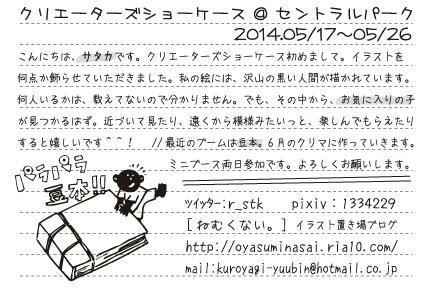 クリエーターズショーケース @ セントラルパーク
2014.05/17～05/26
こんにちは、サタカです。クリエーターズショーケース初めまして。イラストを
何点か飾らせていただきました。私の絵には、沢山の黒い人間が描かれています。
何人いるかは、数えてないので分かりません。でも、その中から、お気に入りの子
が見つかるはず。近づいて見たり、遠くから模様みたいっと、楽しんでもらえたり
すると嬉しいです＾＾！　//最近のブームは豆本。６月のクリマに作っていきます。
ミニブース両日参加です。よろしくお願いします。
パラパラ
豆本!!
ツイッター:r_stk　pixiv：1334229
[ねむくない。] イラスト置き場ブログ
http://oyasuminasai.ria10.com/
mail:kuroyagi-yuubin@hotmail.co.jp